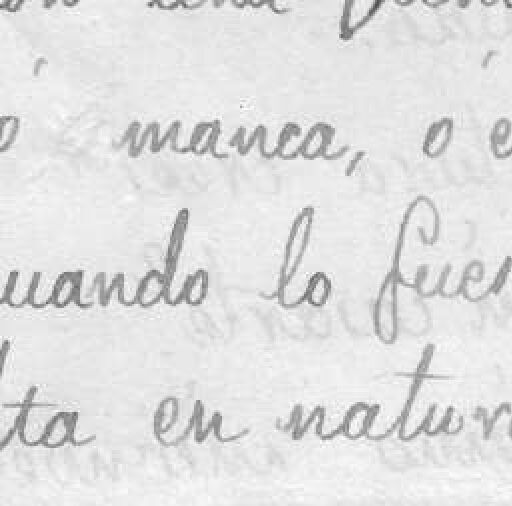 una
o manca, o e
uando lo fuer
lta en natur